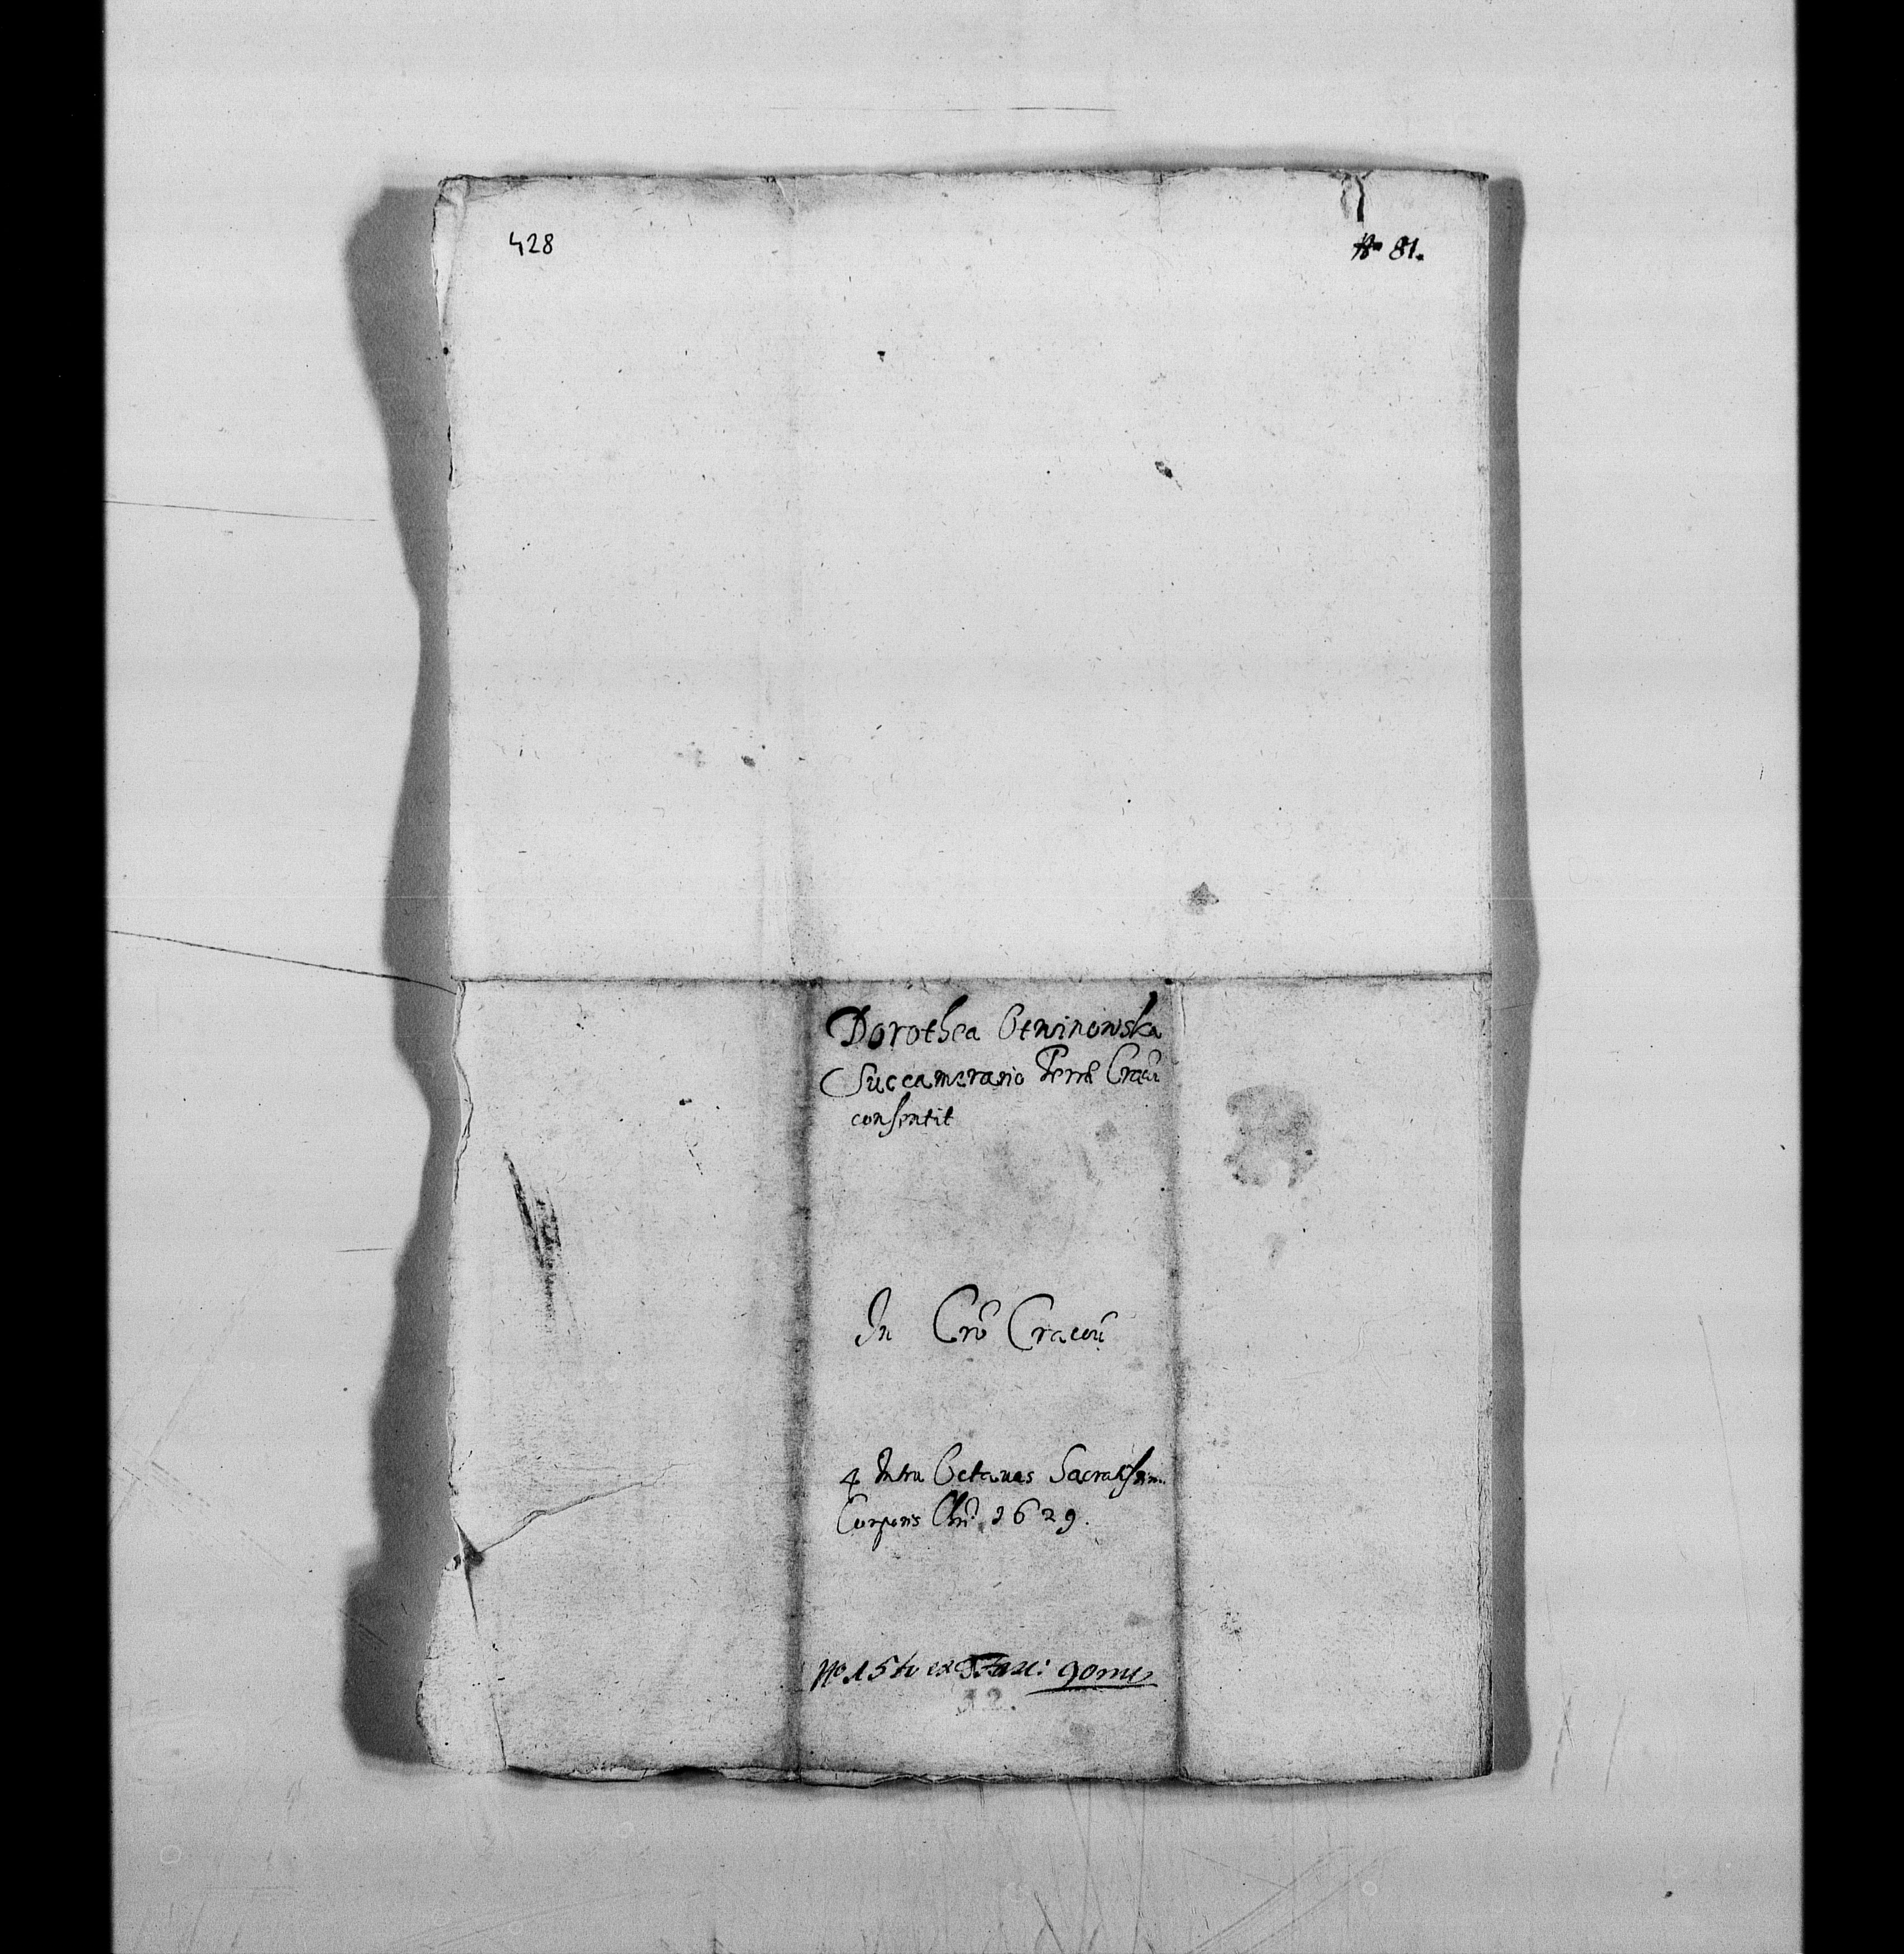 428
No 81.
Dorothea Otwinowska
Succamerario Terrę Cracū
consentit
In Crō Cracoū
4 Intra Octauas Sacratissim.
Corporis Chrī. 1629.
No 15to ex Fasc: 90mu
12.